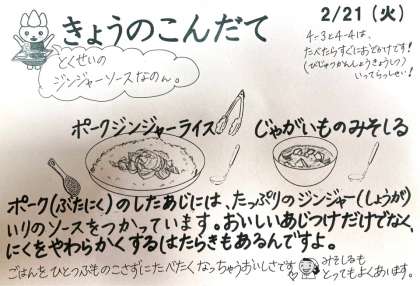 きょうのこんだて
2/21(火)
とくせいの
ジンジャーソースなのん。
4-3と4-4は、
たべたらすぐにおでかけです!
(びじゅつかんしょうきょうしつ)
いってらっしゃい!
ポークジンジャーライス
じゃがいものみそしる
ポーク(ぶたにく)のしたあじには、たっぷりのジンジャー(しょうが)
いりのソースをつかっています。おいしいあじつけだけでなく、
にくをやわらかくするはたらきもあるんですよ。
ごはんをひとつぶものこさずにたべたくなっちゃうおいしさです♡
みそしるも
とってもよくあいます。